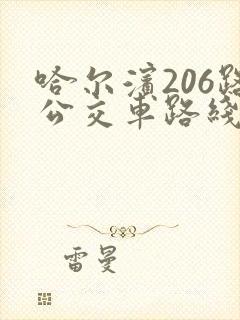 哈尔滨206路
公交车路线
雷曼